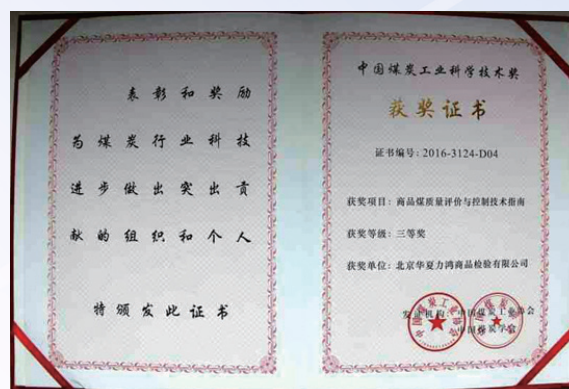 表彰和奖励
为煤炭行业科技
进步做出突出贡
献的组织和个人
特颁发此证书
中国煤炭工业科学技术奖
获奖证书
证书编号：2016-3124-D04
获奖项目：商品煤质量评价与控制技术指南
获奖等级：三等奖
获奖单位：北京华夏力鸿商品检验有限公司
发证机构：中国煤炭工业协会
中国煤炭学会